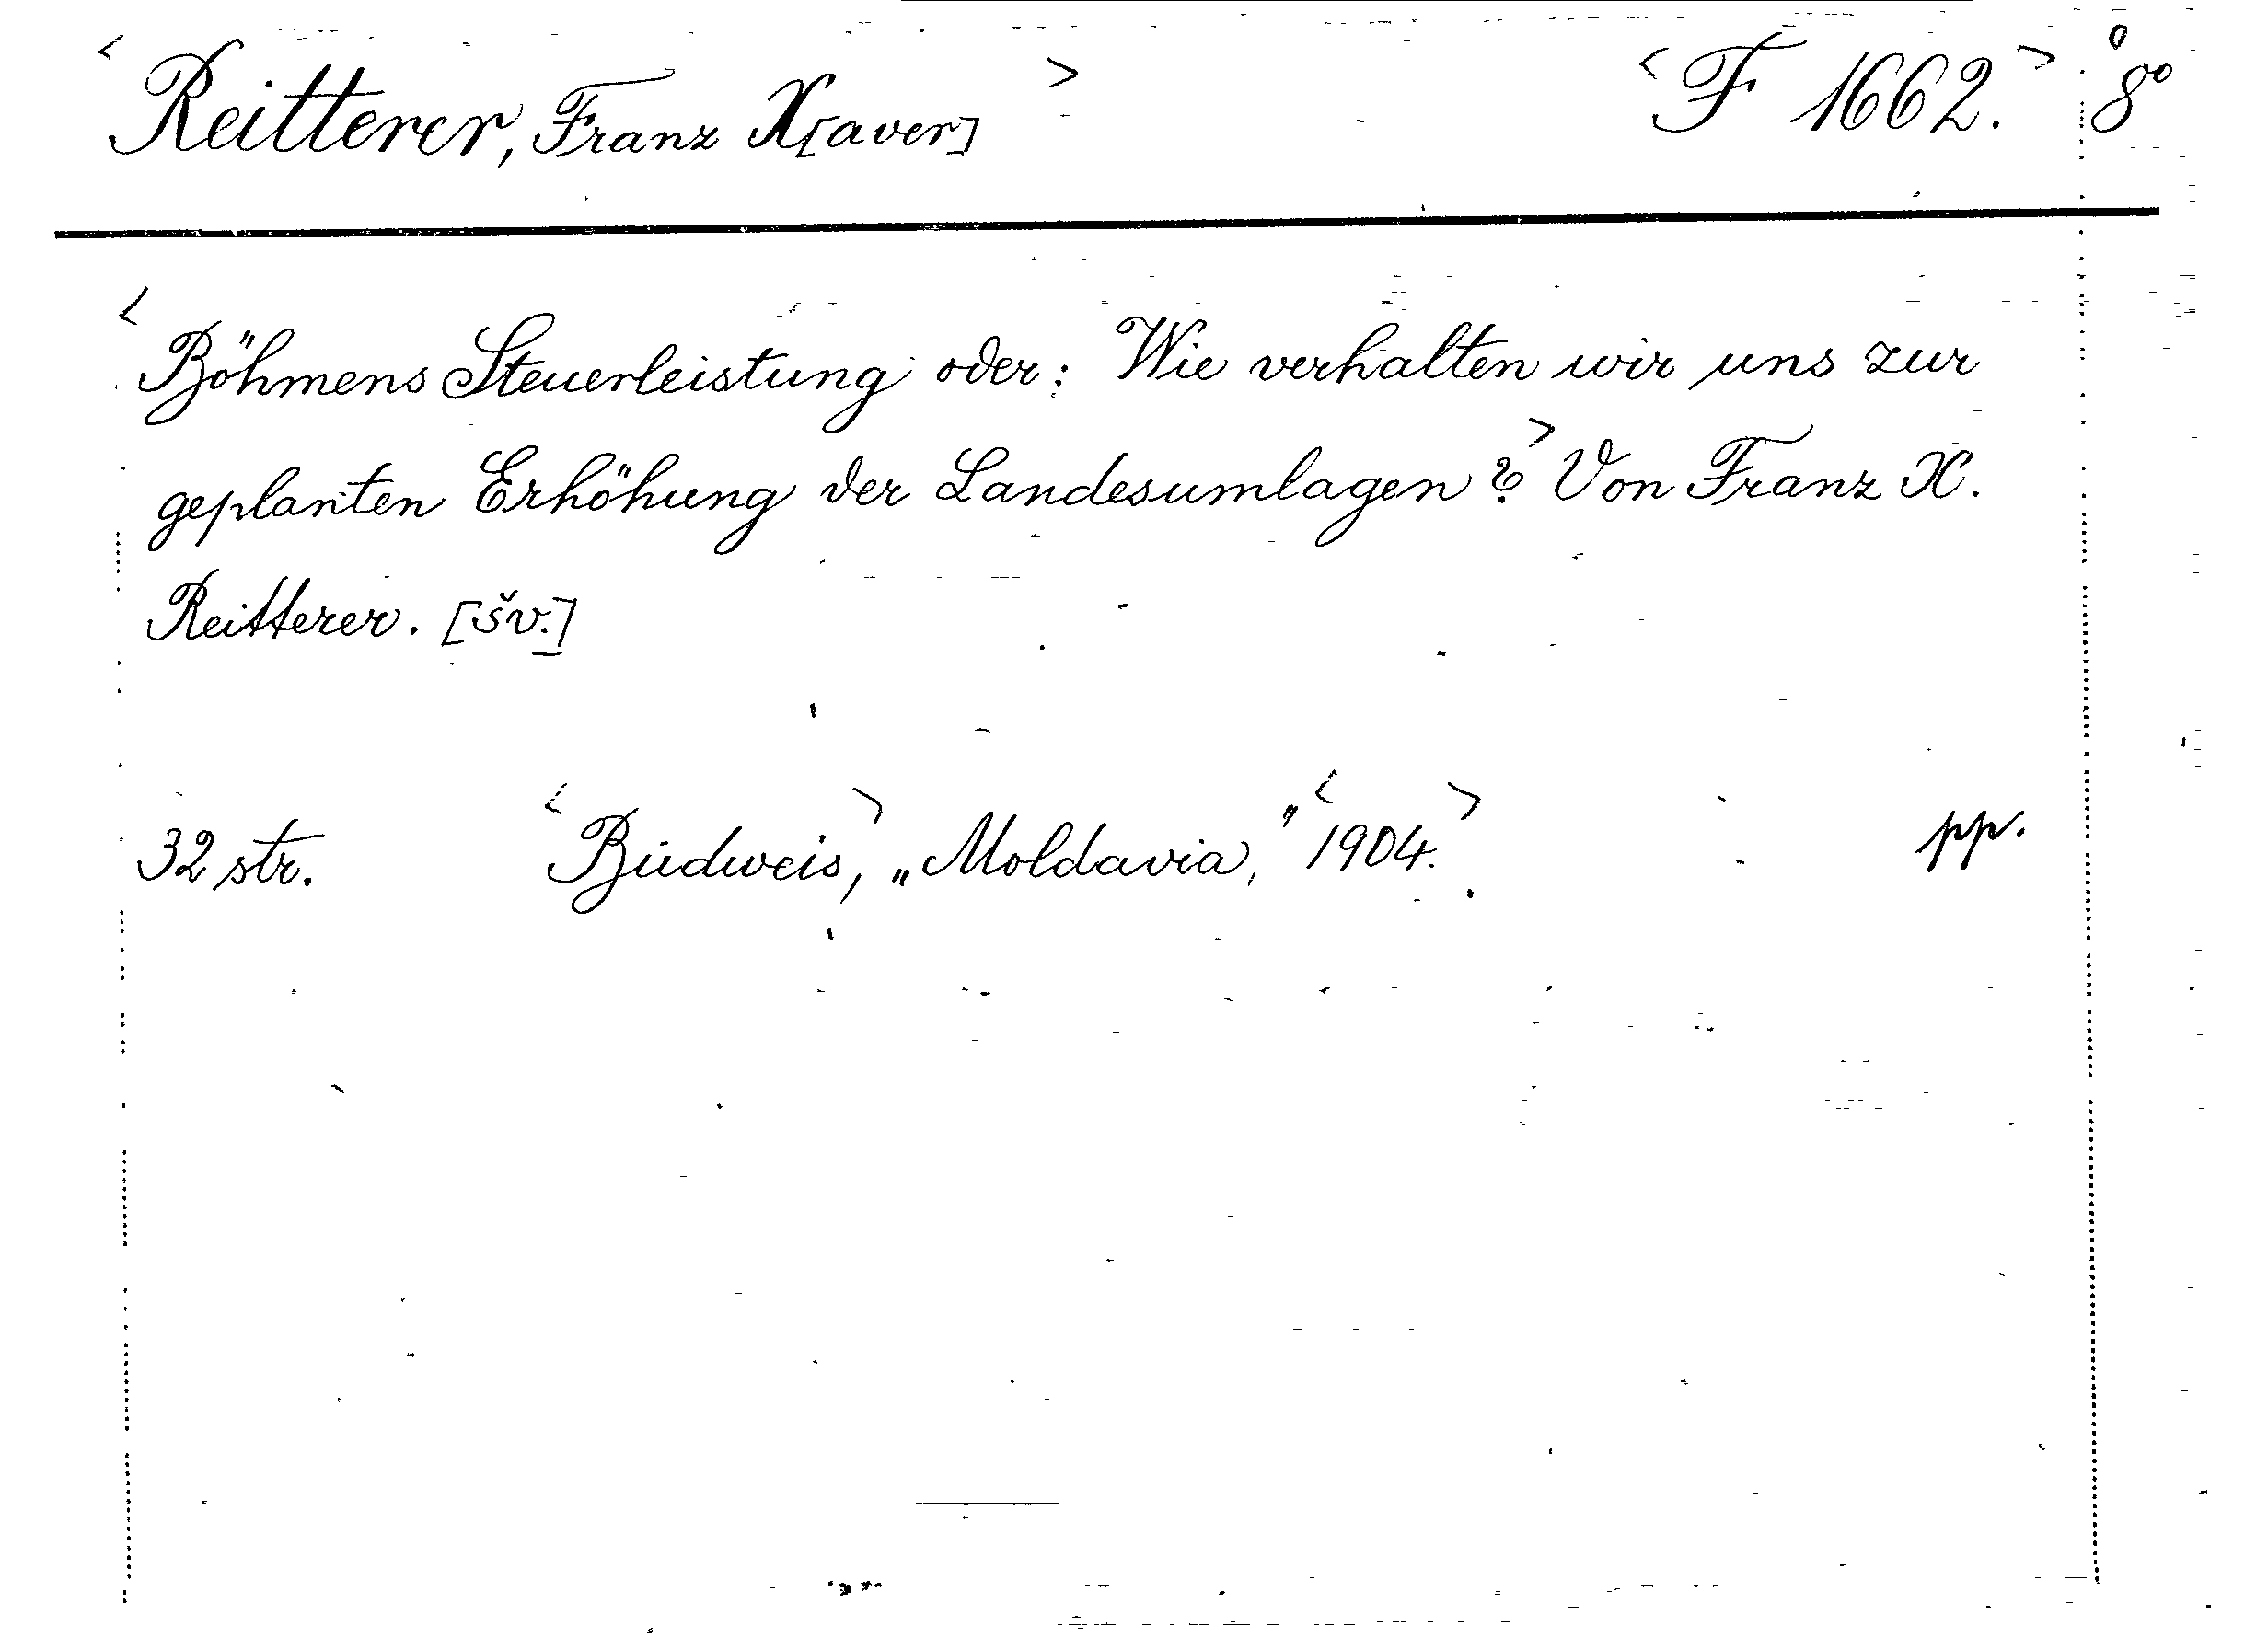 <Reitterer, Franz X[aver]> <F 1662.> 8°
<Böhmens Steuerleistung oder: Wie verhalten wir uns zur
geplanten Erhöhung der Landesumlagen?> Von Franz X.
Reitterer. [šv.]
32 str. <Budweis,> „Moldavia," <1904.> pp.